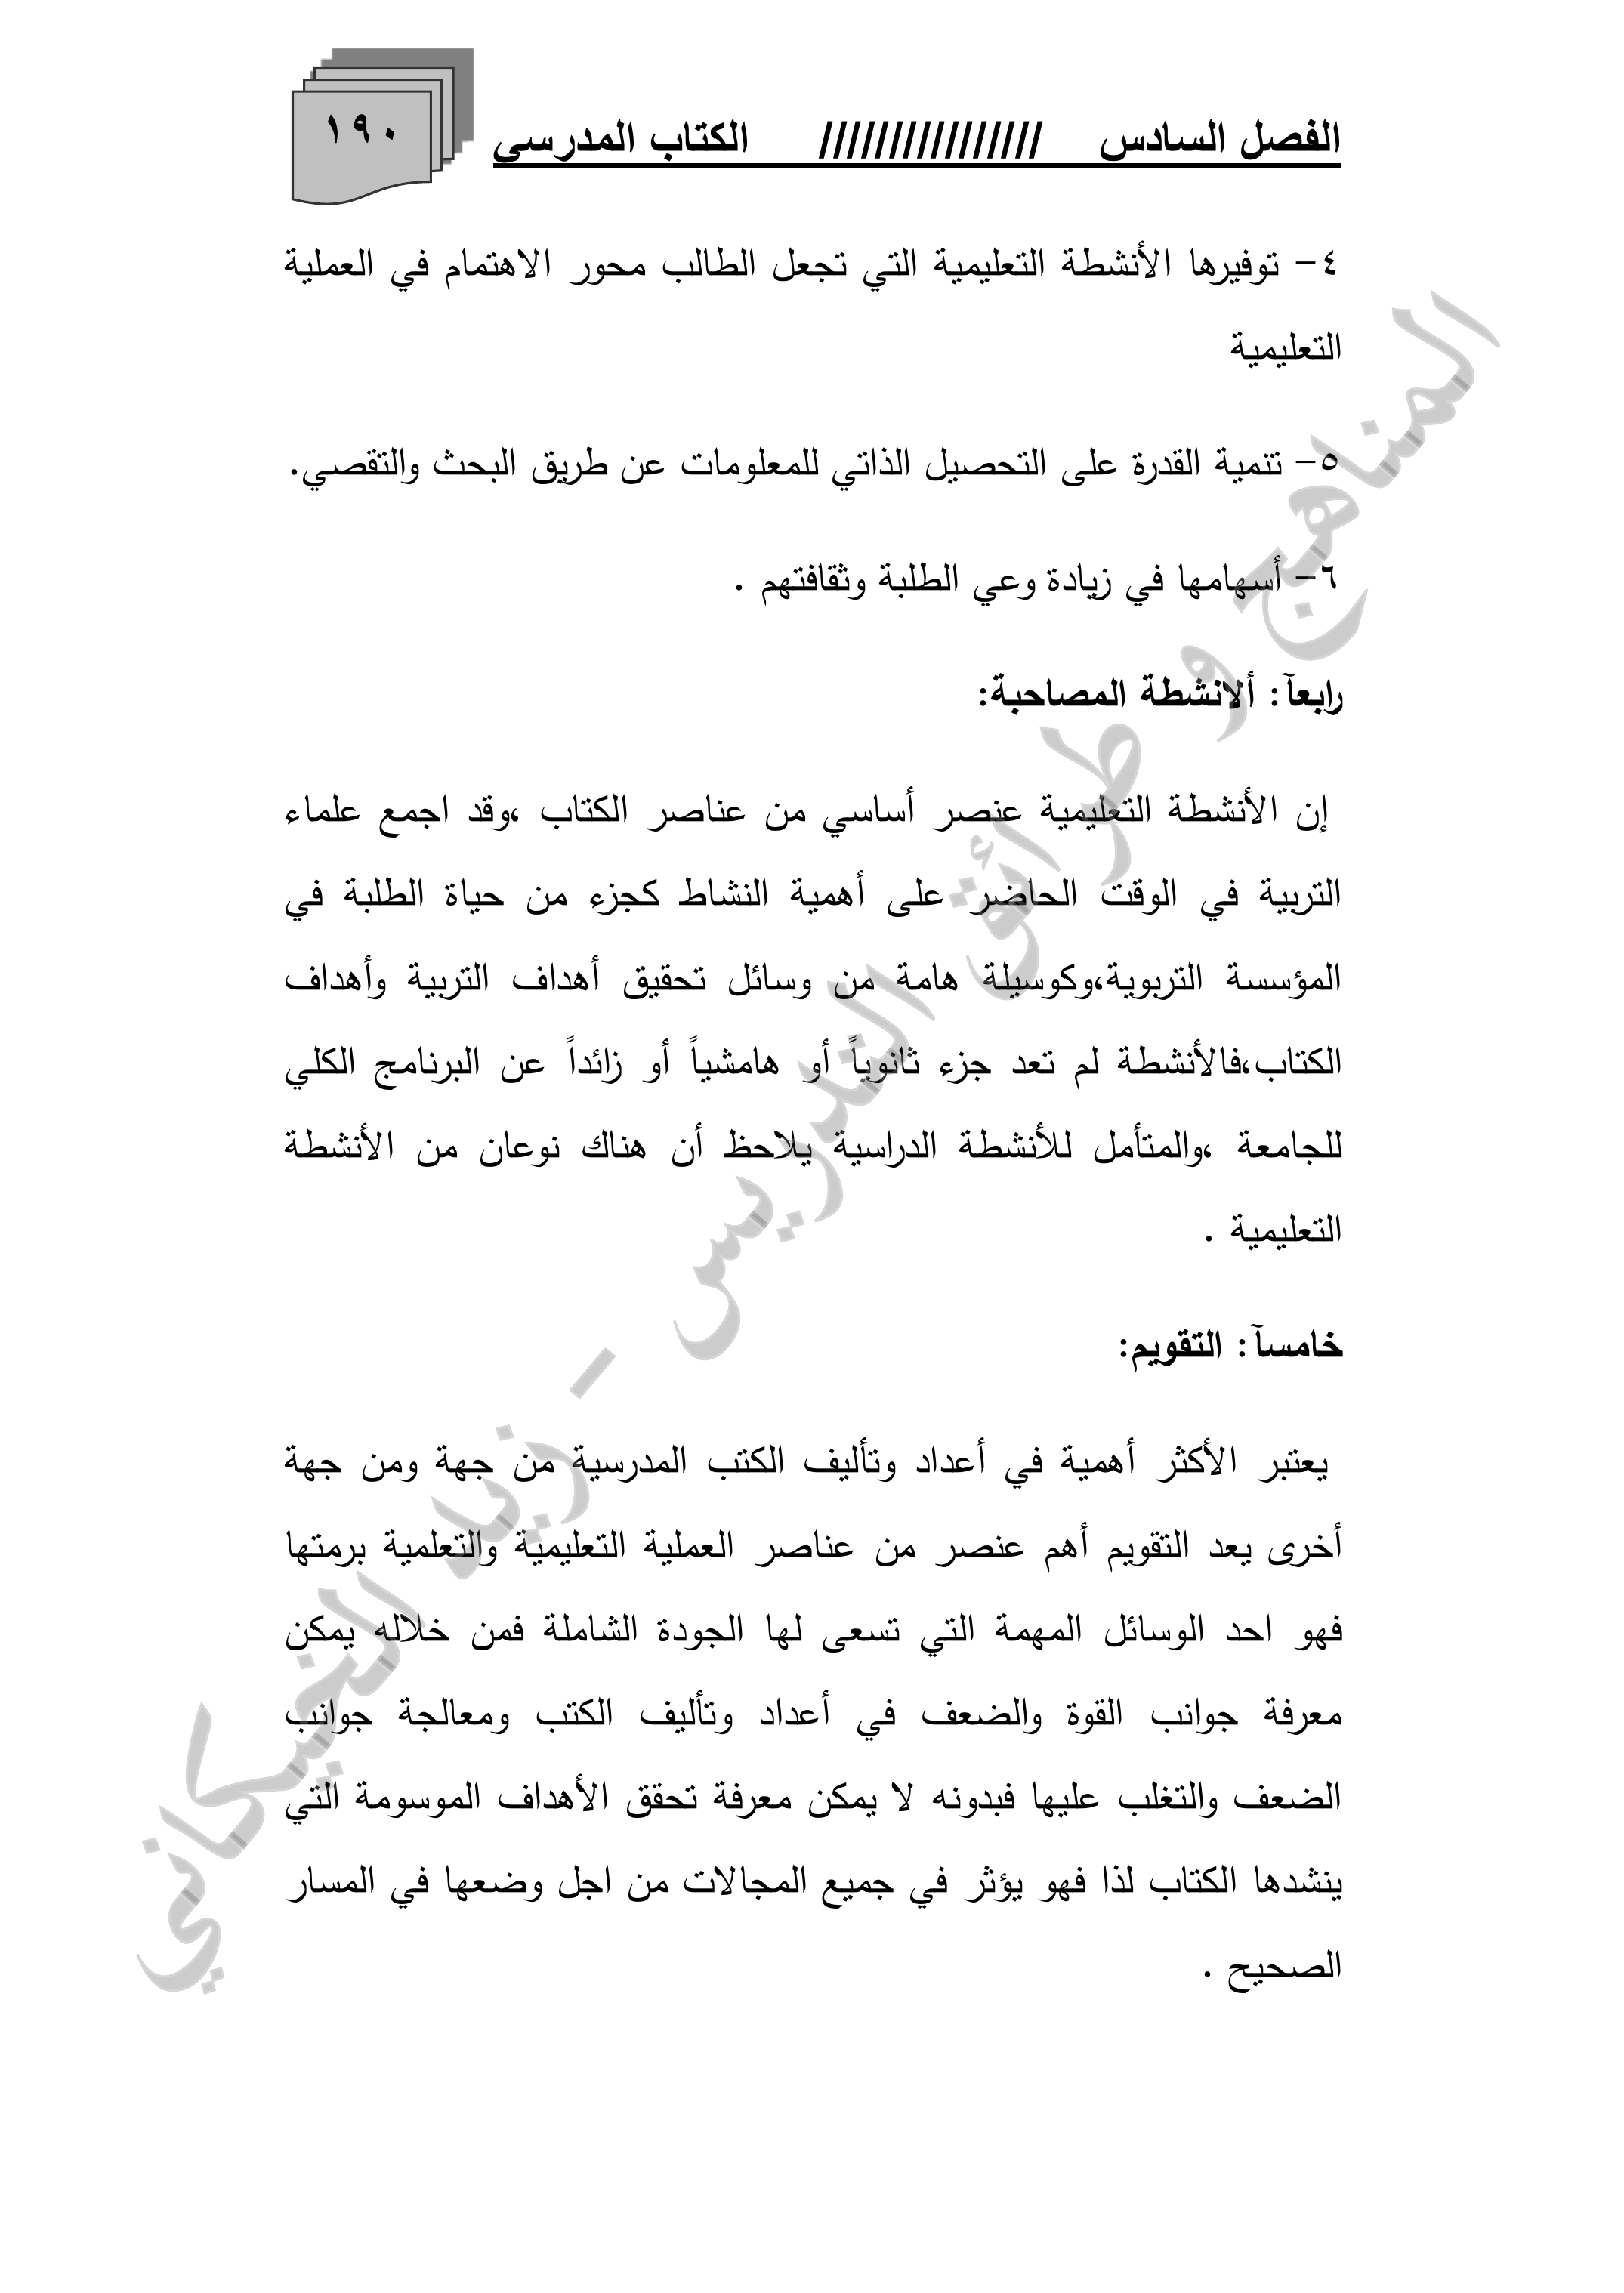 الفصل السادس //////////////// الكتاب المدرسي
١٩٠
٤- توفيرها الأنشطة التعليمية التي تجعل الطالب محور الاهتمام في العملية
التعليمية
٥- تنمية القدرة على التحصيل الذاتي للمعلومات عن طريق البحث والتقصي.
٦- أسهامها في زيادة وعي الطلبة وثقافتهم .
رابعآ: ألانشطة المصاحبة:
إن الأنشطة التعليمية عنصر أساسي من عناصر الكتاب ،وقد اجمع علماء
التربية في الوقت الحاضر على أهمية النشاط كجزء من حياة الطلبة في
المؤسسة التربوية،وكوسيلة هامة من وسائل تحقيق أهداف التربية وأهداف
الكتاب،فالأنشطة لم تعد جزء ثانوياً أو هامشياً أو زائداً عن البرنامج الكلي
للجامعة ،والمتأمل للأنشطة الدراسية يلاحظ أن هناك نوعان من الأنشطة
التعليمية .
خامسآ: التقويم:
يعتبر الأكثر أهمية في أعداد وتأليف الكتب المدرسية من جهة ومن جهة
أخرى يعد التقويم أهم عنصر من عناصر العملية التعليمية والتعلمية برمتها
فهو احد الوسائل المهمة التي تسعى لها الجودة الشاملة فمن خلاله يمكن
معرفة جوانب القوة والضعف في أعداد وتأليف الكتب ومعالجة جوانب
الضعف والتغلب عليها فبدونه لا يمكن معرفة تحقق الأهداف الموسومة التي
ينشدها الكتاب لذا فهو يؤثر في جميع المجالات من اجل وضعها في المسار
الصحيح .
المناهج و طرائق التدريس - زيد الخيكاني